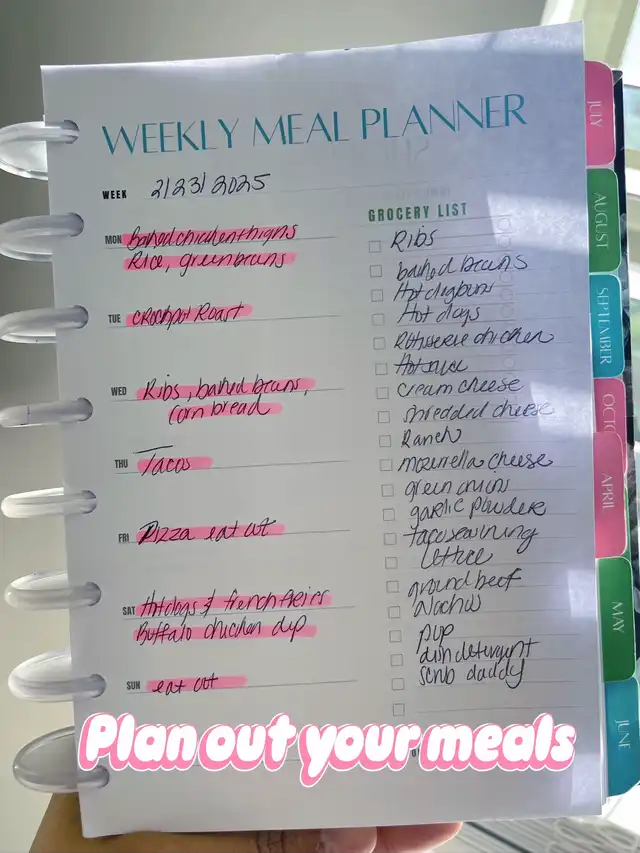 WEEKLY MEAL PLANNER
WEEK 2/23/2025
MON baked chicken thighs
Rice, green beans
TUE crockpot Roast
WED Ribs, baked beans,
corn bread
THU Tacos
FRI Pizza eat out
SAT Hotdogs & french freirs
Buffalo chicken dip
SUN eat out
GROCERY LIST
Ribs
baked beans
Hot dog buns
Hot dogs
Rotisserie chicken
Hot sauce
cream cheese
shredded cheese
Ranch
mozzrella cheese
green onins
garlic powder
taco seasining
lettuce
ground beef
Nachos
pup
dish detergent
scrub daddy
Plan out your meals
JULY
AUGUST
SEPTEMBER
OCTO
APRIL
MAY
JUNE